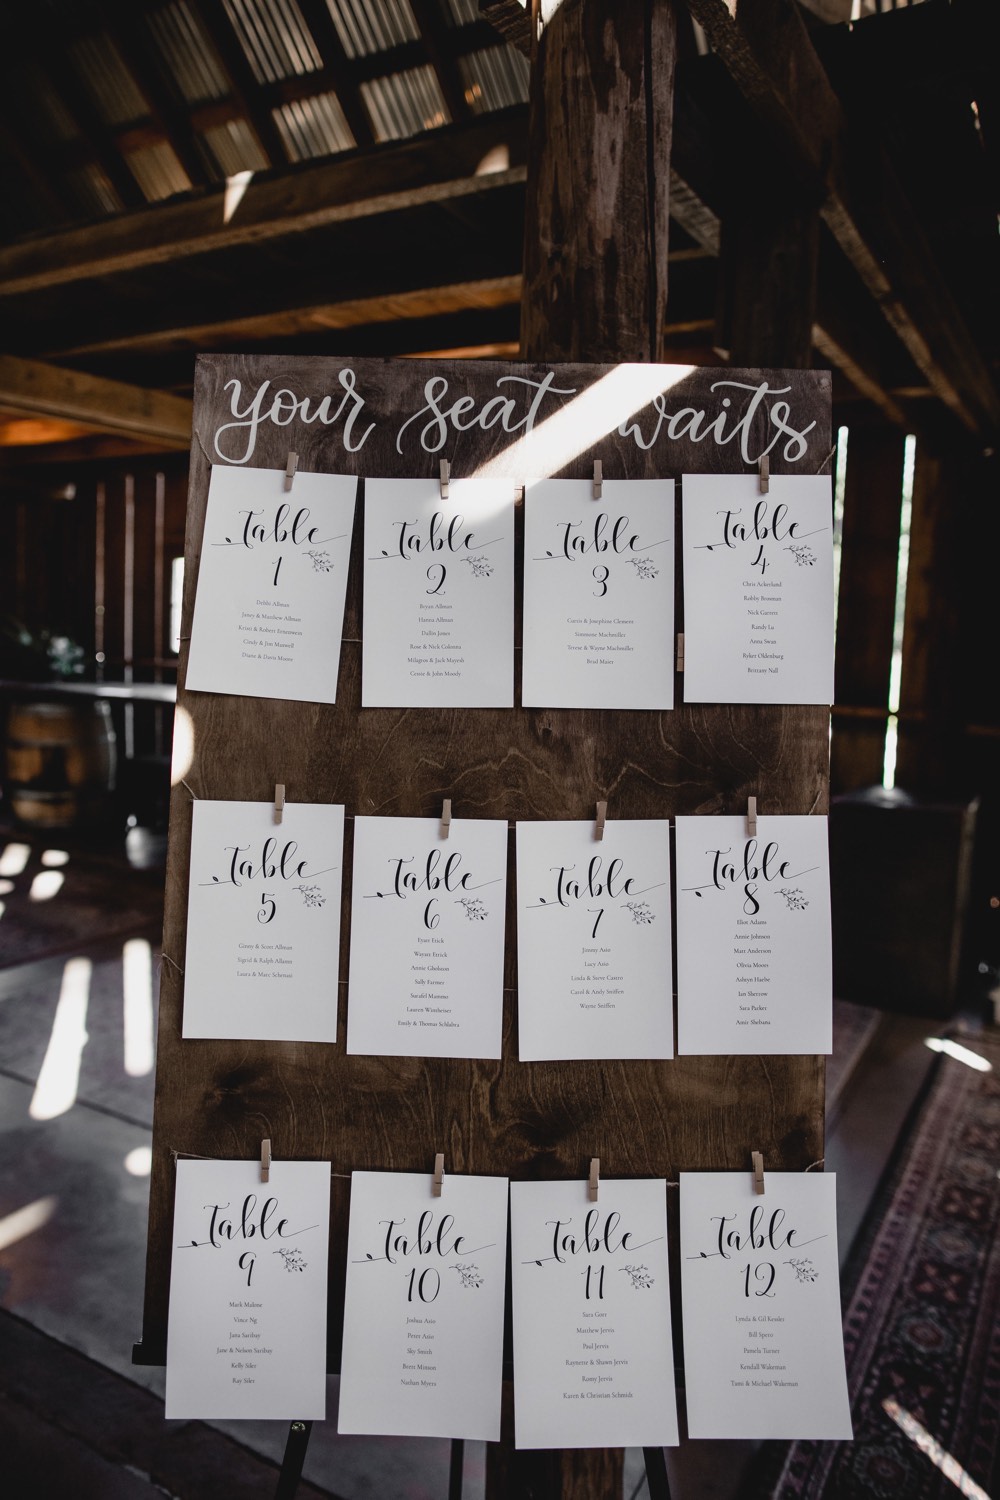 your seat waits
Table
1
Debbi Allman
Janey & Matthew Allman
Kristi & Robert
Cindy & Jim Maxwell
Diane & Davis Moore
Table
2
Bryan Allman
Hanna Allman
Dallin Jones
Rose & Nick Colontro
Milagros & Jack Mayesh
Cessie & John Moody
Table
3
Curtis & Josephine Clement
Simmone Machmiller
Terese & Wayne Machmiller
Brad Maier
Table
4
Chris Ackerlund
Robby Bowman
Nick Guerres
Randy Lu
Anna Swan
Ryker Oldenburg
Brittany Nall
Table
5
Ginny & Scott Allman
Sigrid & Ralph Allman
Laura & Marc Schroson
Table
6
Ettick
Weston Ettick
Annie Gholson
Sally Farmer
Surafel Mammo
Lauren Wintheiser
Emily & Thomas Schlabra
Table
7
Jimmy Asto
Lucy Asto
Linda & Steve Castro
Carol & Andy Sniffen
Wayne Sniffen
Table
8
Eliot Adams
Annie Johnson
Matt Anderson
Olivia Moses
Ashyn Haebe
Ian Sherzow
Sara Parker
Amir Shebana
Table
9
Mark Malone
Vince Ng
Jana Saribay
Jane & Nelson Saribay
Kelly Siler
Ray Siler
Table
10
Joshua Asto
Peter Asto
Sky Smith
Brent Minson
Nathan Myers
Table
11
Sara Gorr
Matthew Jervis
Paul Jervis
Raynette & Shawn Jervis
Ramy Jervis
Karen & Christian Schmidt
Table
12
Lynda & Gil Kessler
Bill Spero
Pamela Turner
Kendall Wakeman
Tami & Michael Wakeman